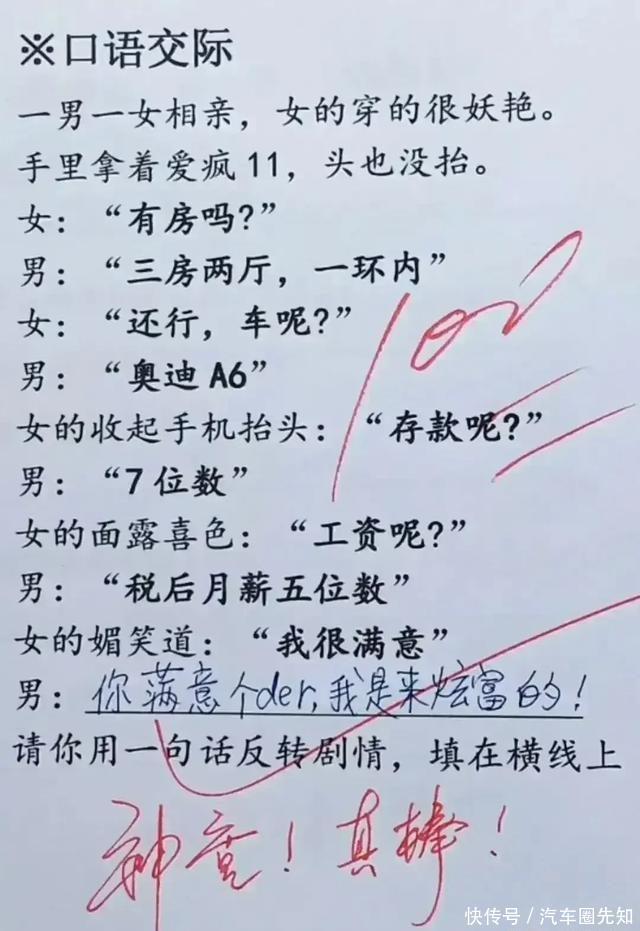 ※口语交际
一男一女相亲，女的穿的很妖艳。
手里拿着爱疯11，头也没抬。
女：“有房吗?”
男：“三房两厅，一环内”
女：“还行，车呢?”
男：“奥迪 A6”
女的收起手机抬头：“存款呢?”
男：“7位数”
女的面露喜色：“工资呢?”
男：“税后月薪五位数”
女的媚笑道：“我很满意”
男：你满意个der,我是来炫富的！
请你用一句话反转剧情，填在横线上
真棒！
快传号/汽车圈先知